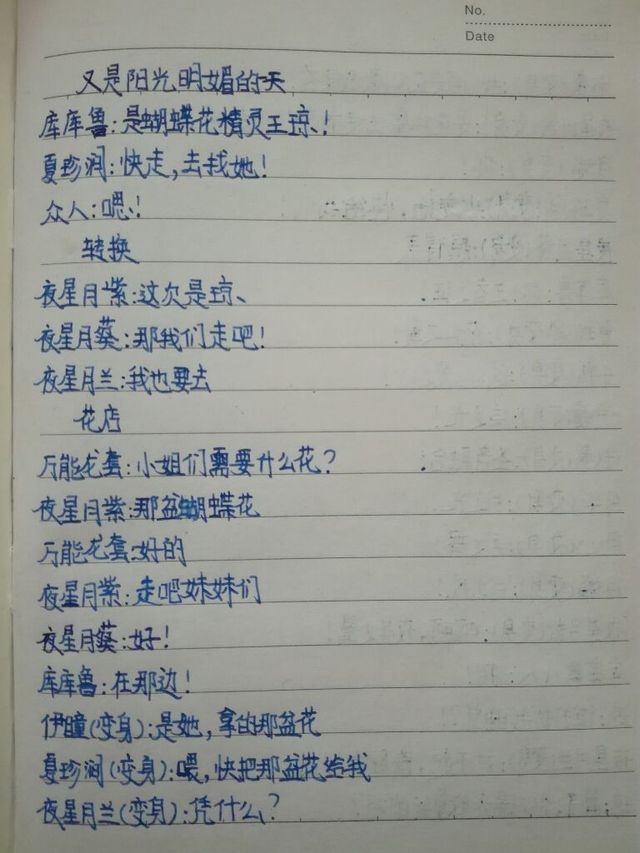 No.
Date
又是阳光明媚的一天
库库鲁:是蝴蝶花精灵王琼!
夏珍润:快走,去找她!
众人:嗯!
转换
夜星月紫:这次是琼、
夜星月葵:那我们走吧!
夜星月兰:我也要去
花店
万能龙套:小姐们需要什么花?
夜星月紫:那盆蝴蝶花
万能龙套:好的
夜星月紫:走吧妹妹们
夜星月葵:好!
库库鲁:在那边!
伊瞳(变身):是她,拿的那盆花
夏珍润(变身):喂,快把那盆花给我
夜星月兰(变身):凭什么?